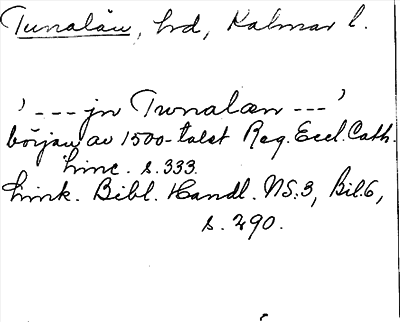 Tunalän, hd, Kalmar l.
' --- jn Twnalæn --- '
början av 1500-talet Reg. Eccl. Cath.
Linc. s. 333.
Link. Bibl. Handl. NS:3, Bil. 6,
s. 290.